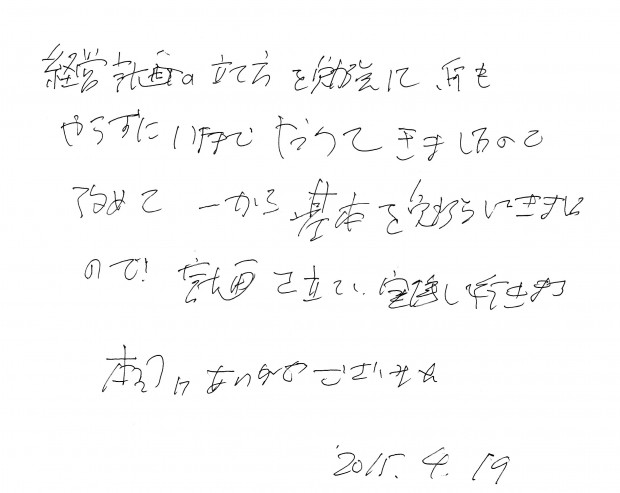 経営計画の立て方を勉強に、何も
やらずに今までやってきましたので
改めて一から基本を勉強できました
ので!計画を立てて、実践して行きます
本当にありがとうございました
2015.4.19